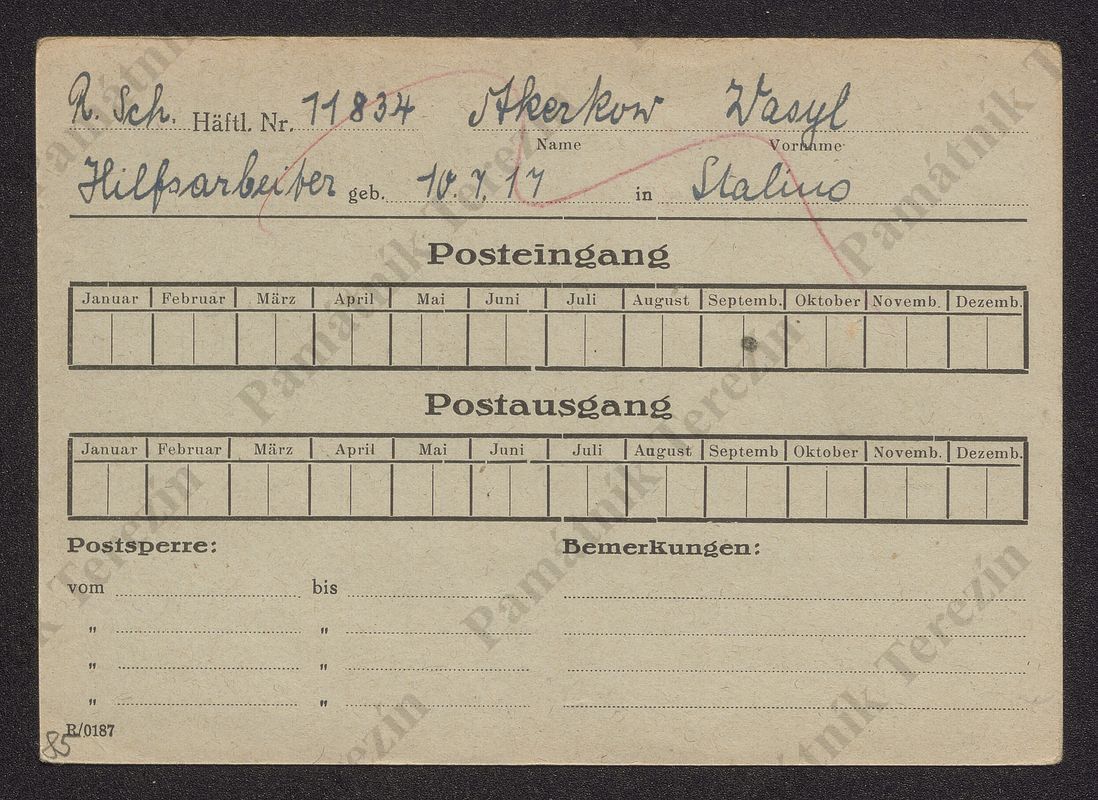 R. Sch. Häftl. Nr. 11834 Akerkow Wasyl
Name Vorname
Hilfsarbeiter geb. 10.7.17 in Stalino
Posteingang
Januar Februar März April Mai Juni Juli August Septemb. Oktober Novemb. Dezemb.
Postausgang
Januar Februar März April Mai Juni Juli August Septemb Oktober Novemb. Dezemb.
Postsperre: Bemerkungen:
vom bis
" "
" "
" "
R/0187
85
Památník Terezín